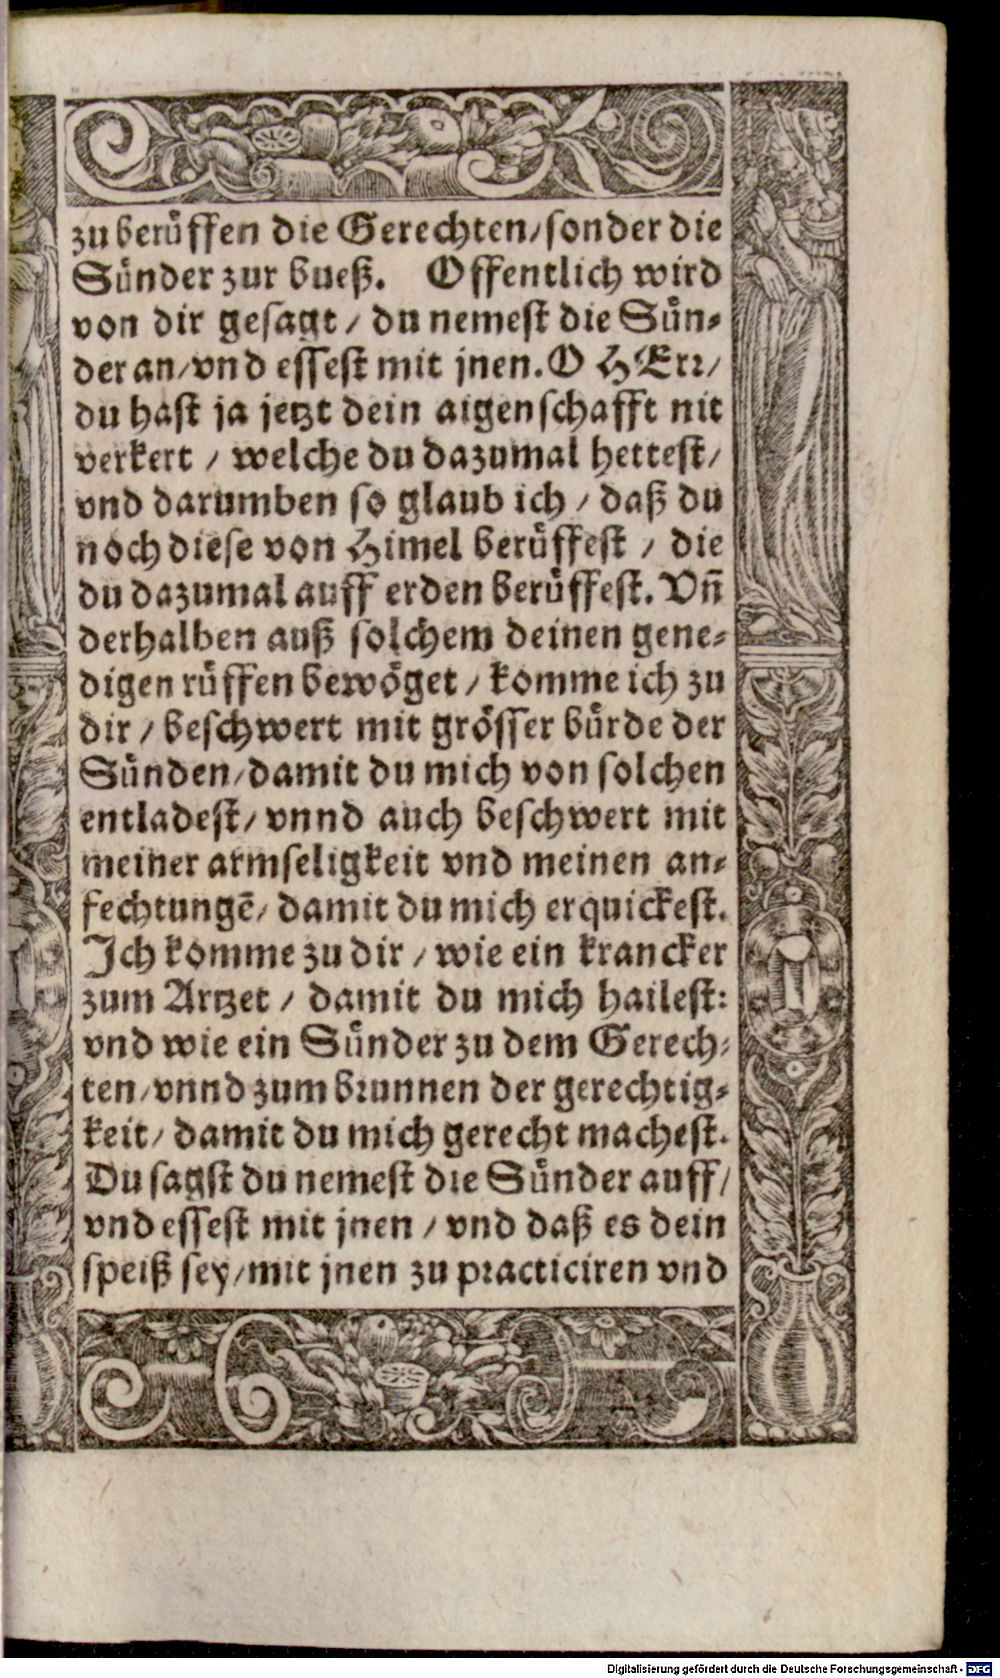 zu berůffen die Gerechten/sonder die
Sůnder zur bueß. Offentlich wird
von dir gesagt / du nemest die Sůn-
der an/vnd essest mit jnen. O HErr/
du hast ja jetzt dein aigenschafft nit
verkert / welche du dazumal hettest/
vnd darumben so glaub ich / daß du
noch diese von Himel berůffest / die
du dazumal auff erden berůffest. Vñ
derhalben auß solchem deinen gene-
digen růffen bewöget / komme ich zu
dir / beschwert mit grösser bůrde der
Sůnden/damit du mich von solchen
entladest/ vnnd auch beschwert mit
meiner armseligkeit vnd meinen an-
fechtungē/ damit du mich erquickest.
Ich komme zu dir / wie ein krancker
zum Artzet / damit du mich hailest:
vnd wie ein Sůnder zu dem Gerech-
ten/vnnd zum brunnen der gerechtig-
keit/ damit du mich gerecht machest.
Du sagst du nemest die Sůnder auff/
vnd essest mit jnen / vnd daß es dein
speiß sey/mit jnen zu practiciren vnd
Digitalisierung gefördert durch die Deutsche Forschungsgemeinschaft - DFG